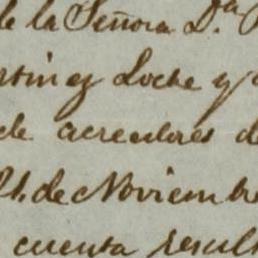 de la Señora D.ª
rtinez Loche y
de acreedores de
21. de Noviembre
cuenta result